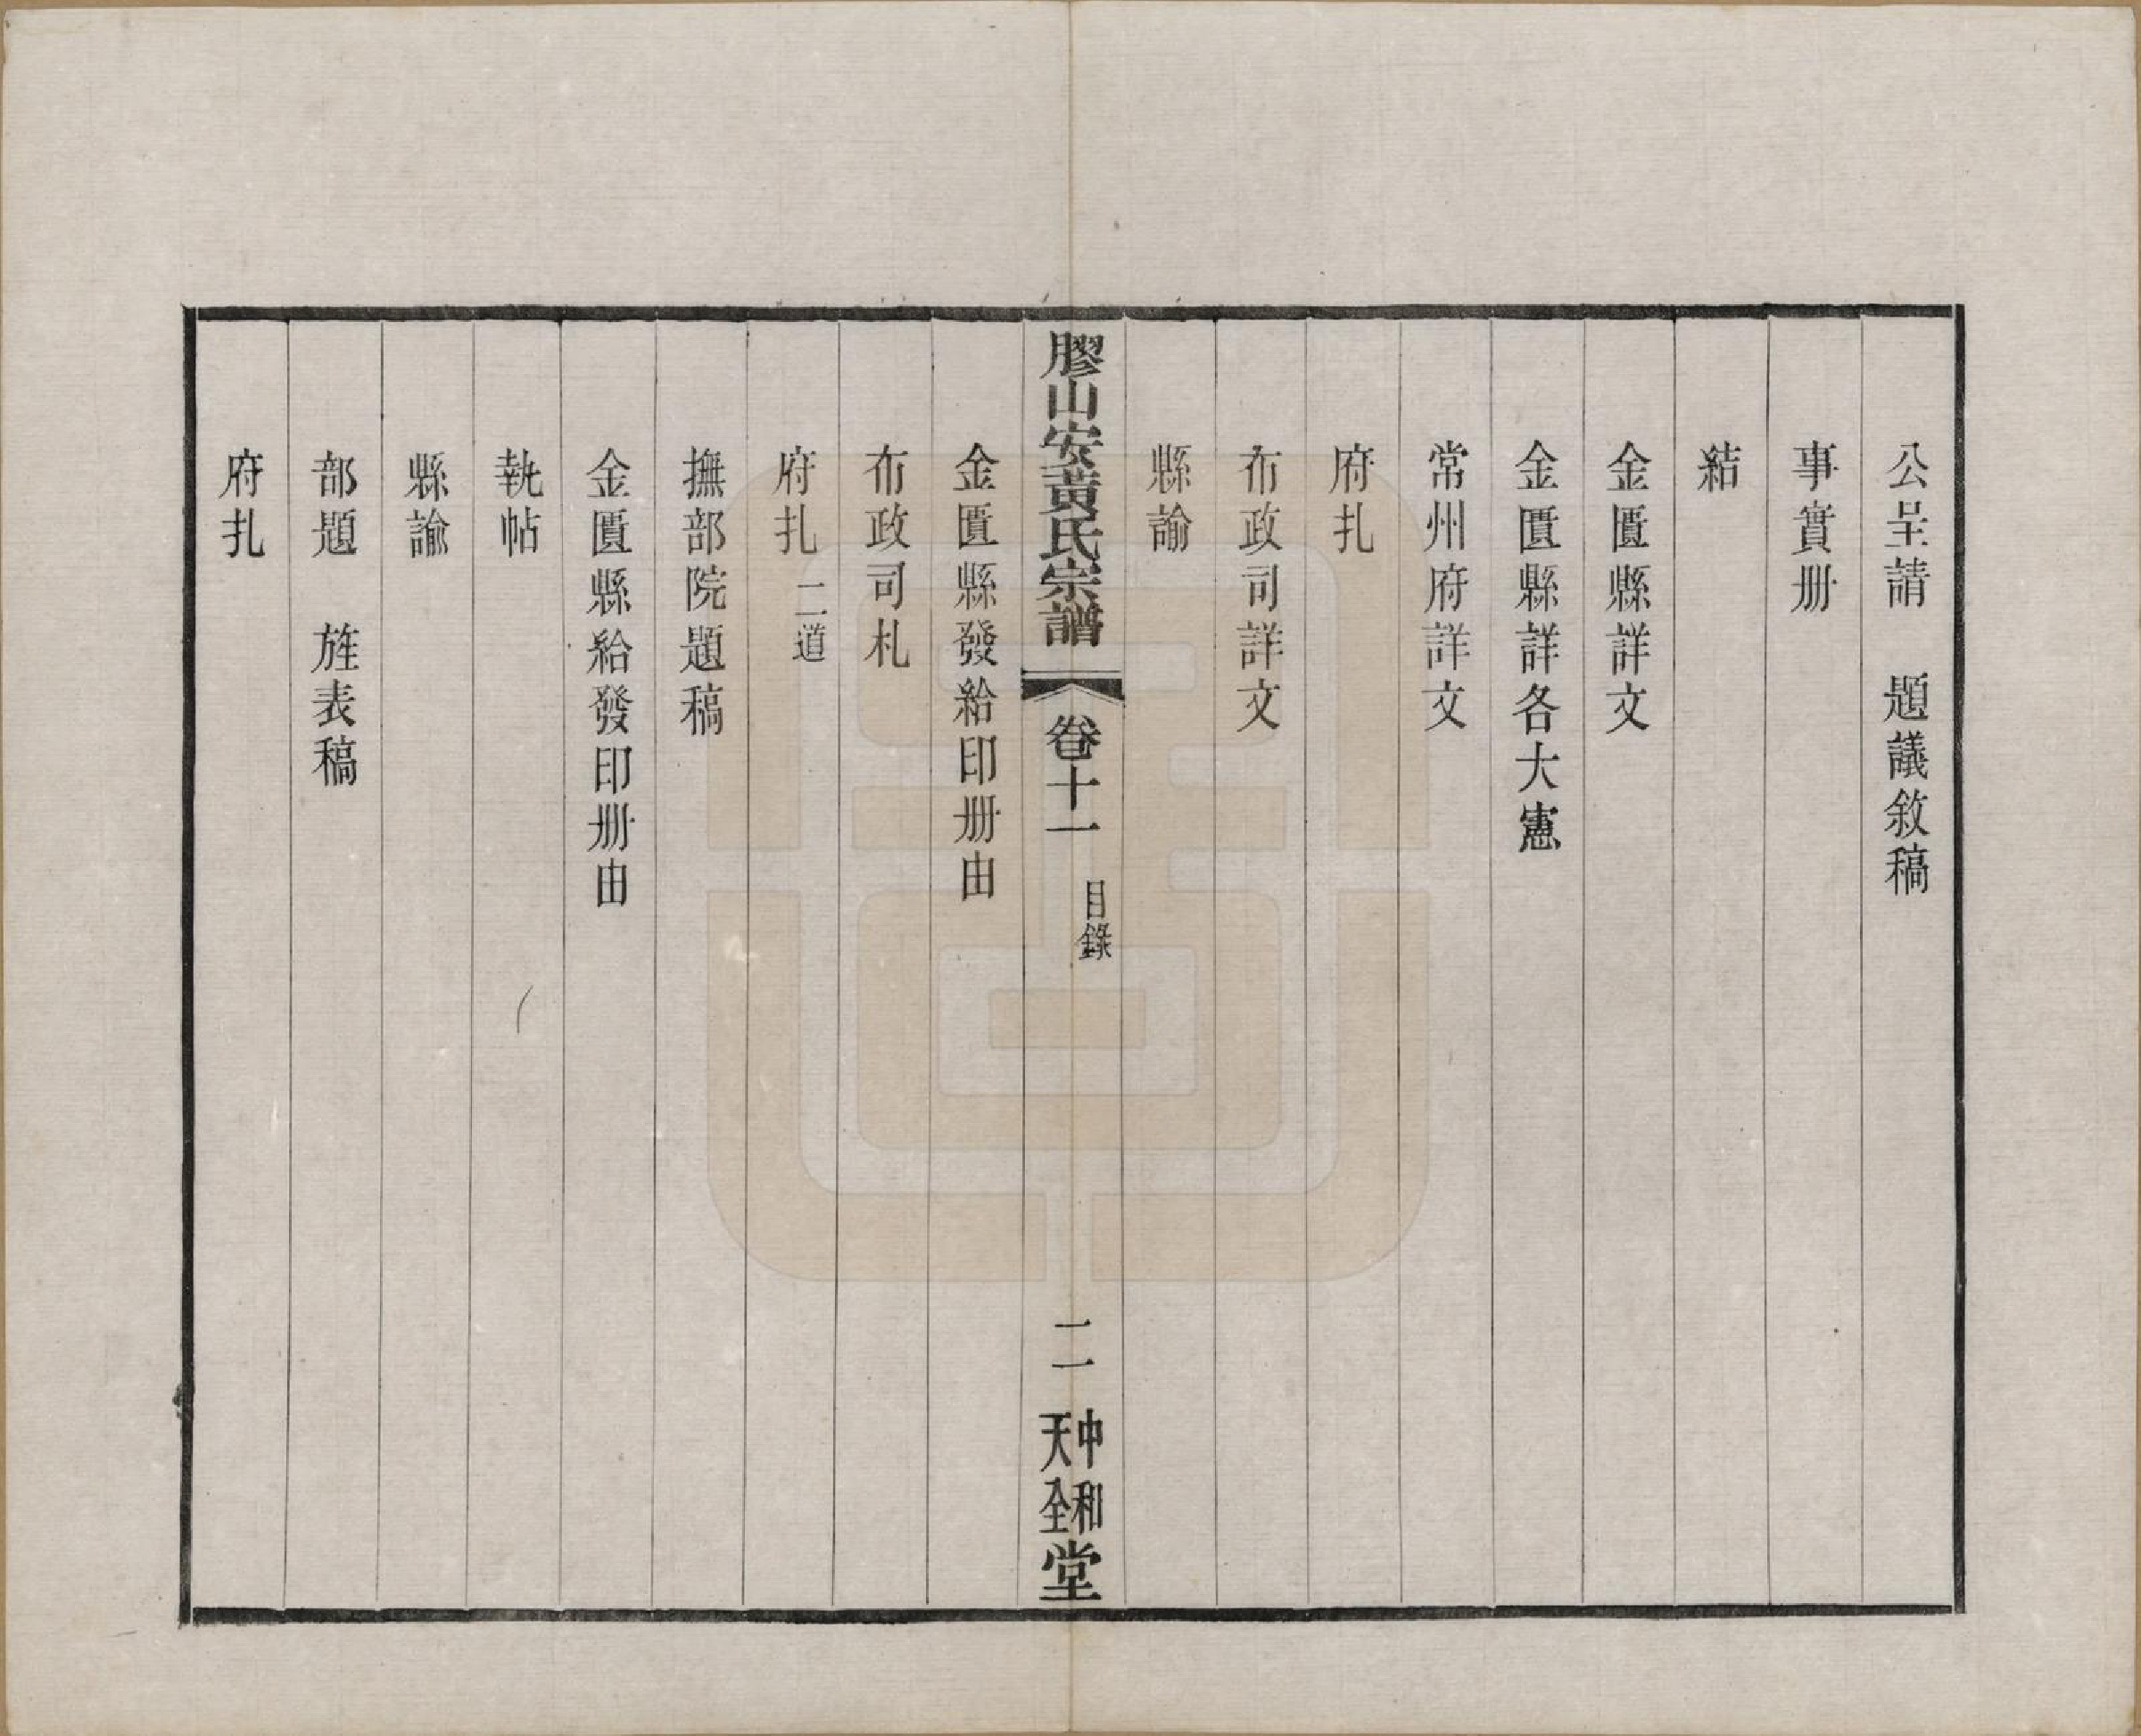 公呈請　題議敘稿
事實册
結
金匱縣詳文
金匱縣詳各大憲
常州府詳文
府扎
布政司詳文
縣諭
膠山安黃氏宗譜　卷十一　目錄　二　中和天全堂
金匱縣發給印册由
布政司札
府扎二道
撫部院題稿
金匱縣給發印册由
執帖
縣諭
部題　旌表稿
府扎